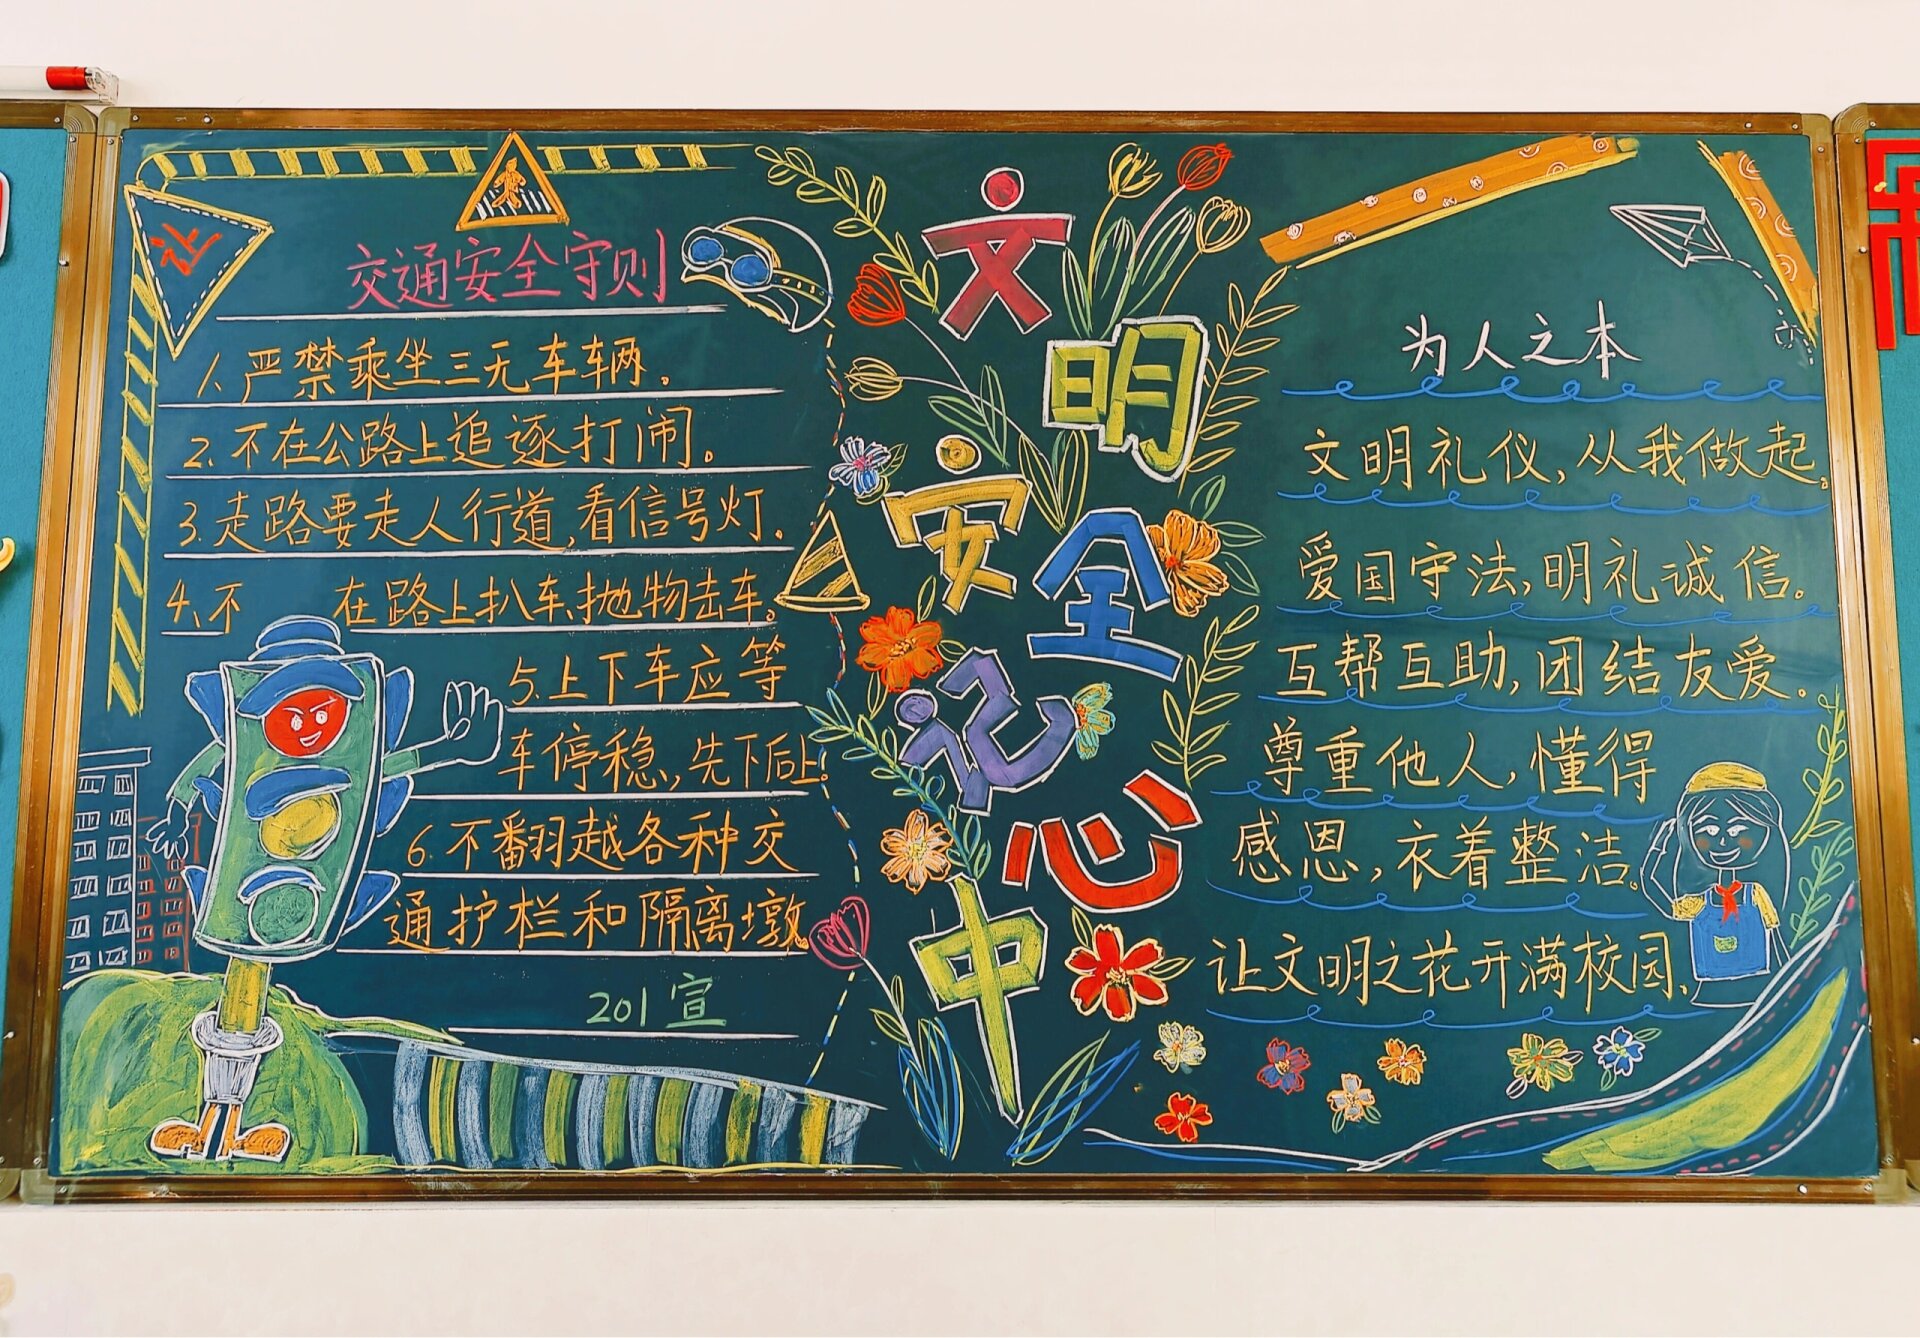 让
交通安全守则
1.严禁乘坐三无车辆。
2.不在公路上追逐打闹。
3.走路要走人行道,看信号灯.
4.不 在路上扒车、抛物击车。
5.上下车应等
车停稳,先下后上。
6.不翻越各种交
通护栏和隔离墩。
201宣
文明
安全
记心
中
为人之本
文明礼仪,从我做起。
爱国守法,明礼诚信。
互帮互助,团结友爱.
尊重他人,懂得
感恩,衣着整洁。
让文明之花开满校园.